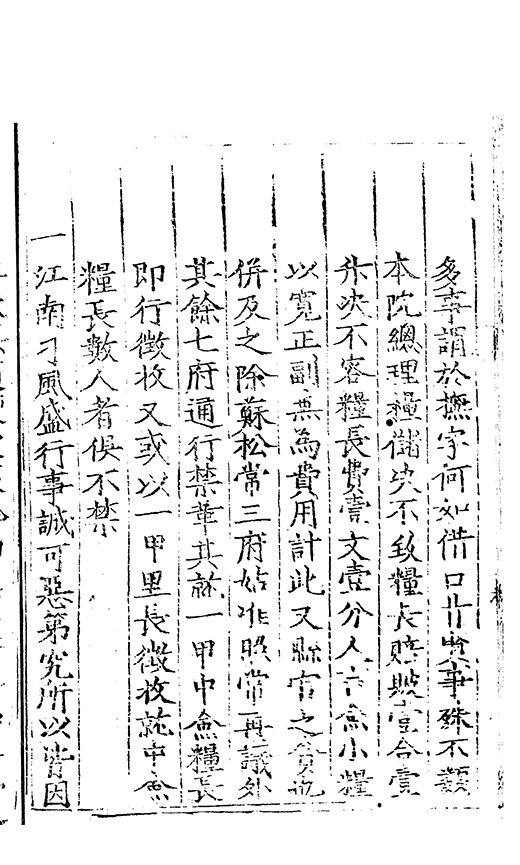 多事謂於撫字何如借口廿異事殊不類
本院總理糧儲决不致糧長賠貱壹合壹
升决不容糧長費壹文壹分人言僉小糧
以寬正副無為費用計此又縣官之貪也
併及之除蘇松常三府姑准照常再議外
其餘七府通行禁革其就一甲中僉糧長
即行徵收又或以一甲里長徵收就中僉
糧長數人者俱不禁
一江南刁風盛行事誠可惡第究所以皆因